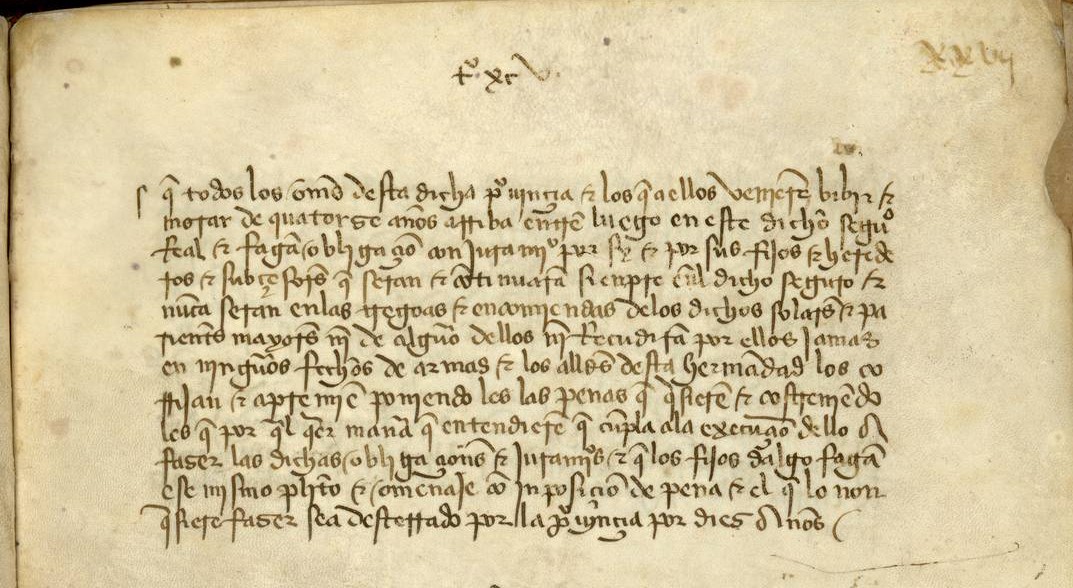 tº xcv
xxvij
q̄ todos los om̄s desta dicha pºuinçia & los q̄ a ellos venierē bibir &
morar de quatorse años arriba entrē luego en este dicho seguº
Real & fagā obligaçiō con juramºº por sy & por sus fijos & herede
ros & subçesors̄ q̄ seran & cōtinuarā sienpre enl̄ dicho seguro &
nūca seran en las treguas & encomiendas de los dichos solars̄ & pa
rients̄ mayors̄ nī de algūo dellos nī Recudirā por ellos jamas
en ningūos fechos de armas & los alls̄ desta hermādad los co
rrijan & apremiē poniendo les las penas q̄ q̄sierē & costremēdo
les q̄ por q̄l q̄er manā q̄ entendierē q̄ cūpla ala execuçiō dello A
faser las dichas obligaçions̄ & juramºs & q̄ los fijos dalgo fagā
ese mismo plīto & omenaje cō inposiciō de pena & el q̄ lo non
q̄siere faser sea desterrado por la pºuinçia por dies Años